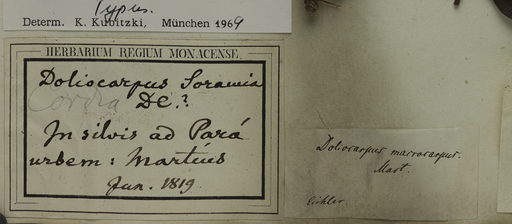 Typus.
Determ. K. Kubitzki, München 1969
HERBARIUM REGIUM MONACENSE.
Doliocarpus Soramia
Cordia DC.?
In silvis ad Pará
urbem: Martius
Jun. 1819.
Doliocarpus macrocarpus.
Mart.
Eichler.